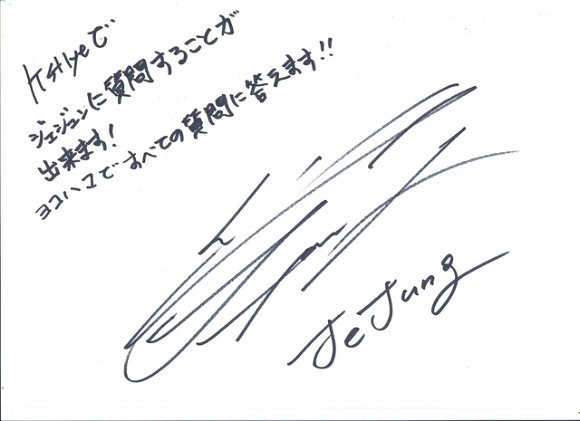 で
ジェジュンに質問することが
出来ます!
ヨコハマですべての質問に答えます!!
JeJung